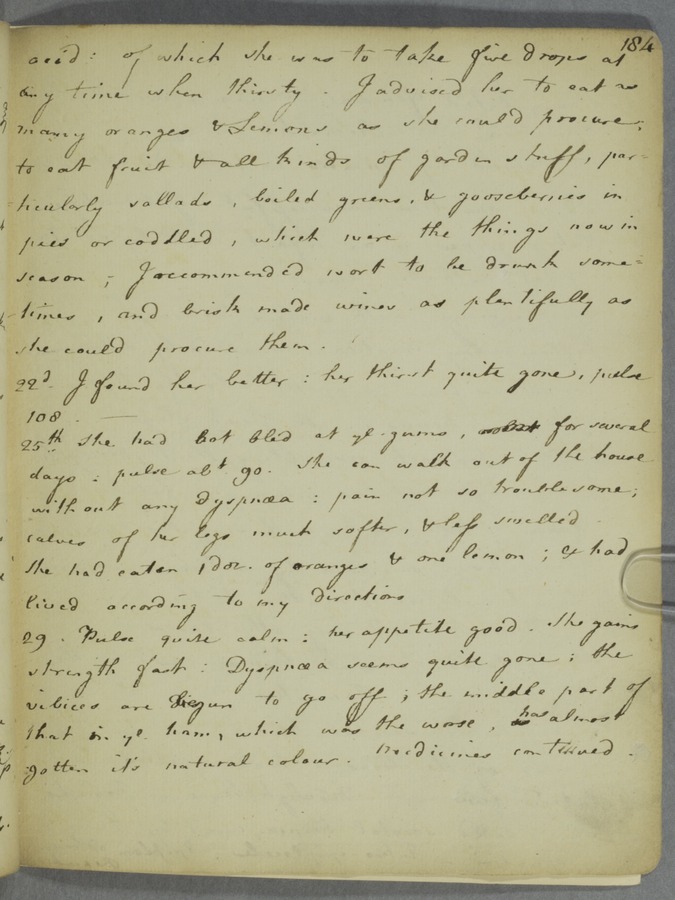 184
acid: of which she was to take five drops at
any time when thirsty. I advised her to eat as
many oranges & Lemons as she could procure;
to eat fruit & all kinds of garden stuff, par=
=ticularly sallads, boiled greens, & gooseberries in
pies or coddled, which were the things now in
season; I recommended wort to be drunk some=
=times, and brisk made wines as plentifully as
she could procure them.
22d. I found her better: her thirst quite gone, pulse
108. —
25th She had not bled at ye. gums, for several
days: pulse abt. 90. She can walk out of the house
without any Dyspnœa: pain not so troublesome;
calves of her legs much softer, & less swelled.
She had eaten 1 doz. of oranges & one lemon; & had
lived according to my directions
29. Pulse quite calm: her appetite good. She gains
strength fast: Dyspnœa seems quite gone; the
vibices are begun to go off; the middle part of
that in ye. ham, which was the worse, has almost
gotten it's natural colour. Medicines continued.